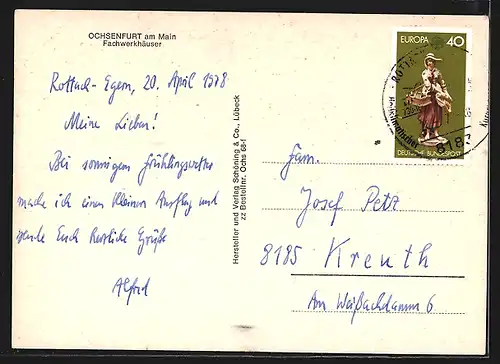 OCHSENFURT am Main
Fachwerkhäuser
Rottach-Egern, 20. April 1978
Meine Lieben!
Bei sonnigem Frühlingswetter
mache ich einen kleinen Ausflug und
sende Euch herzliche Grüße
Alfred
Hersteller und Verlag Schöning & Co., Lübeck
zz Bestellnr. Ochs 68-1
EUROPA 40
DEUTSCHE BUNDESPOST
ROTTA
8183
Fam.
Josef Petz
8185 Kreuth
Am Weißachdamm 6